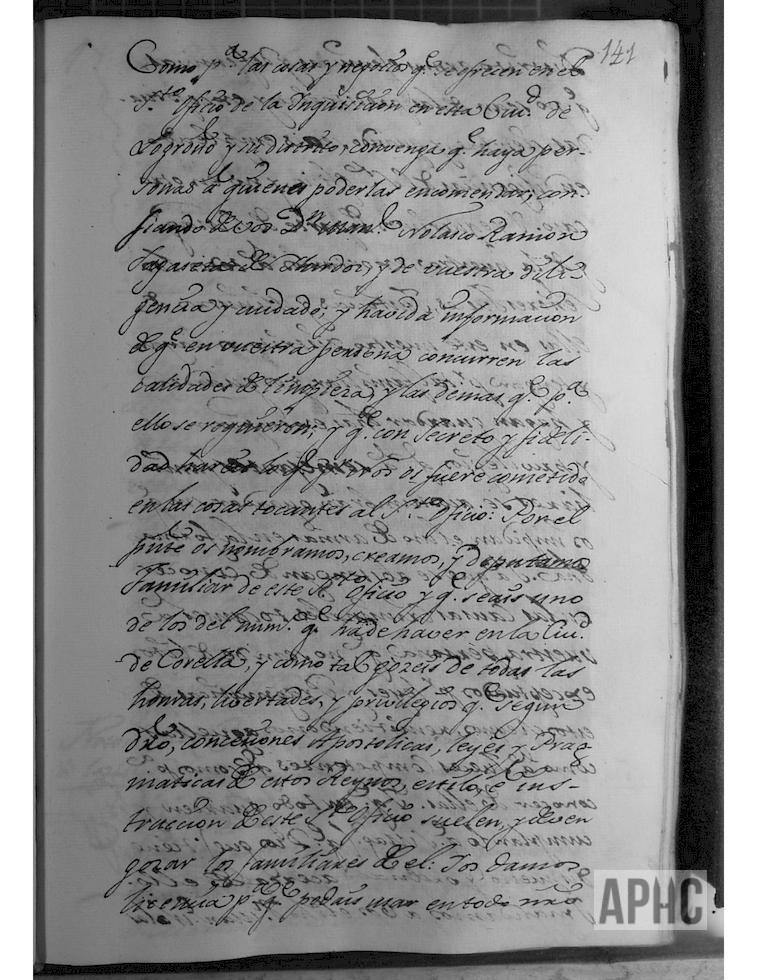 141
Como p.ª las cosas y negocios q.e se ofrecen en el
S.to Oficio de la Inquisicion en esta Ciu.d de
Logroño y su distrito, convenga q.e haya per-
sonas a quienes poderlas encomendar; con-
fiando de vos D.n Man.l Nolasco Ramon
de y de vuestra dili-
gencia y cuidado; y havida informacion
de q.e en vuestra persona concurren las
calidades de limpieza, y las demas q.e p.ª
ello se requieren; y q.e con secreto y fideli-
dad hareis lo q.e por nos os fuere cometido
en las cosas tocantes al S.to Oficio: Por el
pnte os nombramos, creamos, y deputamos
Familiar de este S.to Oficio y q.e seais uno
de los del num.o q.e ha de haver en la Ciu.d
de Corella, y como tal goceis de todas las
honras, libertades, y privilegios q.e segun
dro, concesiones Apostolicas, leyes y Prag-
maticas de estos Reynos, estilo, e ins-
truccion de este S.to Oficio suelen, y deven
gozar los familiares de el: Ios damos
licencia p.ª q.e podais usar en todo nro
APHC